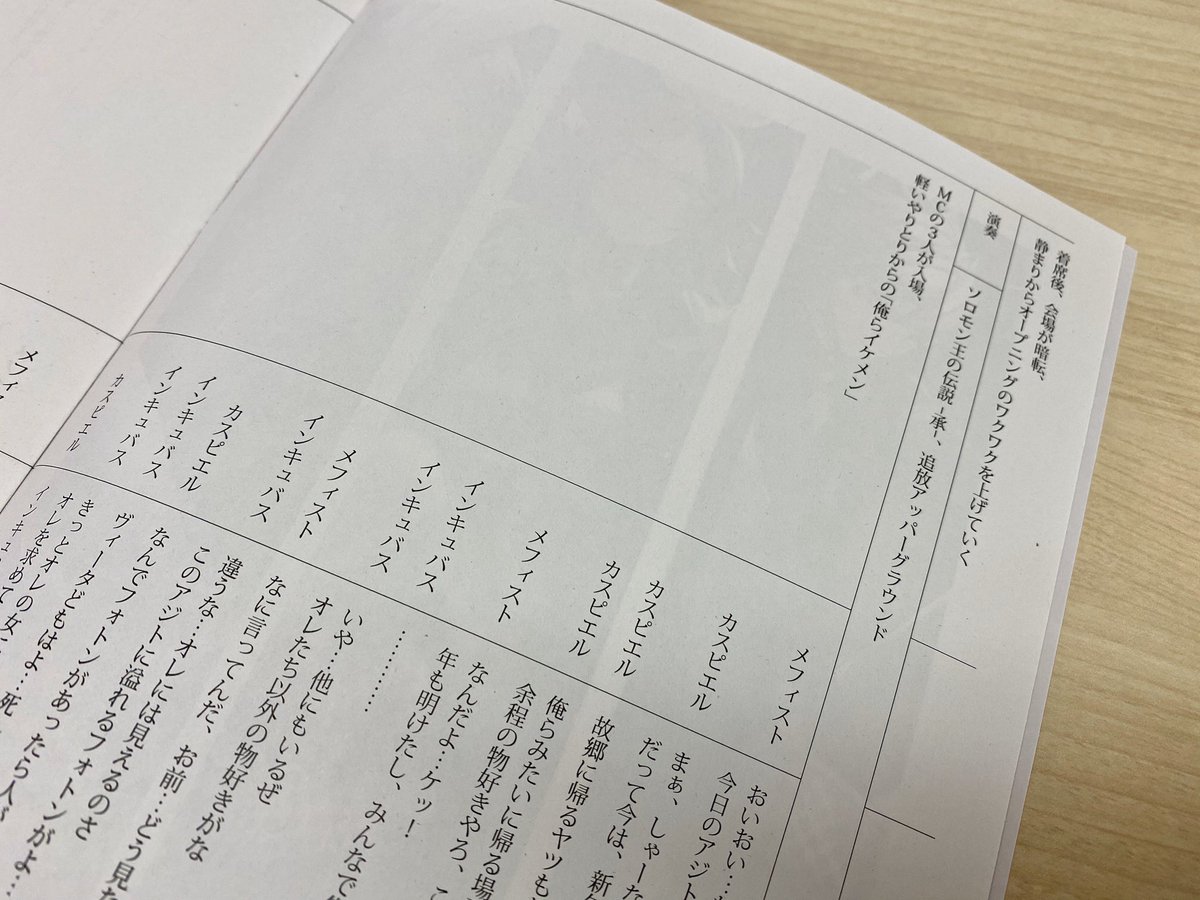 着席後、会場が暗転、
静まりからオープニングのワクワクを上げていく
演奏
ソロモン王の伝説 -承-、追放アッパーグラウンド
MCの3人が入場、
軽いやりとりからの「俺らイケメン」
メフィスト
おいおい…
今日のアジト
カスピエル
まぁ、しゃーな
カスピエル
だって今は、新
故郷に帰るヤツも
カスピエル
俺らみたいに帰る場
余程の物好きやろ、こ
メフィスト
なんだよ…ケッ!
インキュバス
年も明けたし、みんなで
インキュバス
…………
メフィスト
いや…他にもいるぜ
インキュバス
オレたち以外の物好きがな
カスピエル
なに言ってんだ、お前…どう見た
インキュバス
違うな…オレには見えるのさ
インキュバス
このアジトに溢れるフォトンがよ…
カスピエル
なんでフォトンがあったら人が
ヴィータどもはよ…死
きっとオレの女に
オレを求めて
インキュ
メフィ